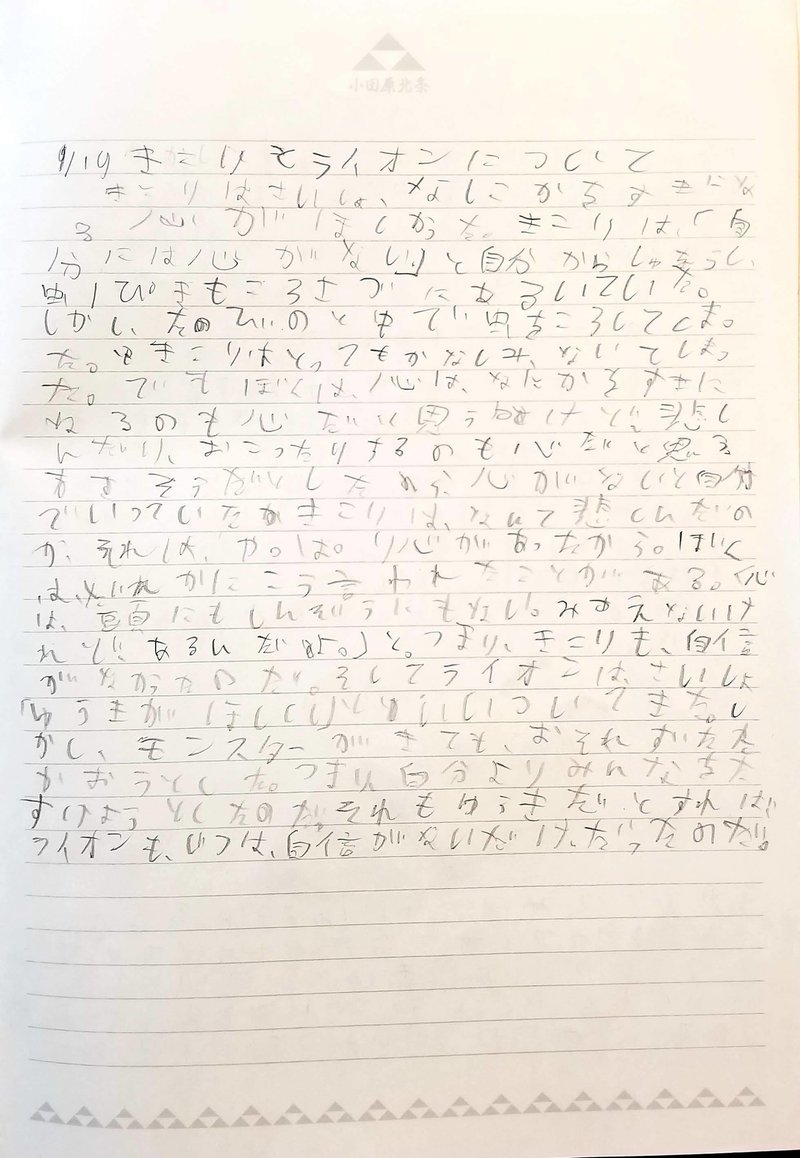 小田原北条
9/19 きこりとライオンについて
きこりはさいしょ、なにかをすきにな
る心がほしかった。きこりは、「自
分には心がない」と自分から
虫1ぴきもころさずにあるいていた。
しかし、たびのとちゅうで虫をころしてしまっ
た。きこりはとってもかなしみ、ないてしまっ
た。でもぼくは、心は、なにかをすきに
なるのも心だと思うけど悲し
んだり、おこったりするのも心だと思
そうだとしたら、心がないと自分
でいっていたがきこりは、なんで悲しんだの
か、それは、やっぱり心があったから。ぼく
は、だれかにこう言われたことがある。「心
は、頭にもしんぞうにもない。みえないけ
れど、あるんだよ。」と。つまり、きこりも、自信
がなかったのだ。そしてライオンは、さいしょ
「ゆうきがほしい」といいついてきた。し
かし、モンスターがきても、おそれずたた
かおうとした。つまり自分よりみんなをた
すけようとしたのだ。それもゆうきだとすれば、
ライオンも、じつは、自信がないだけ、だったのだ。